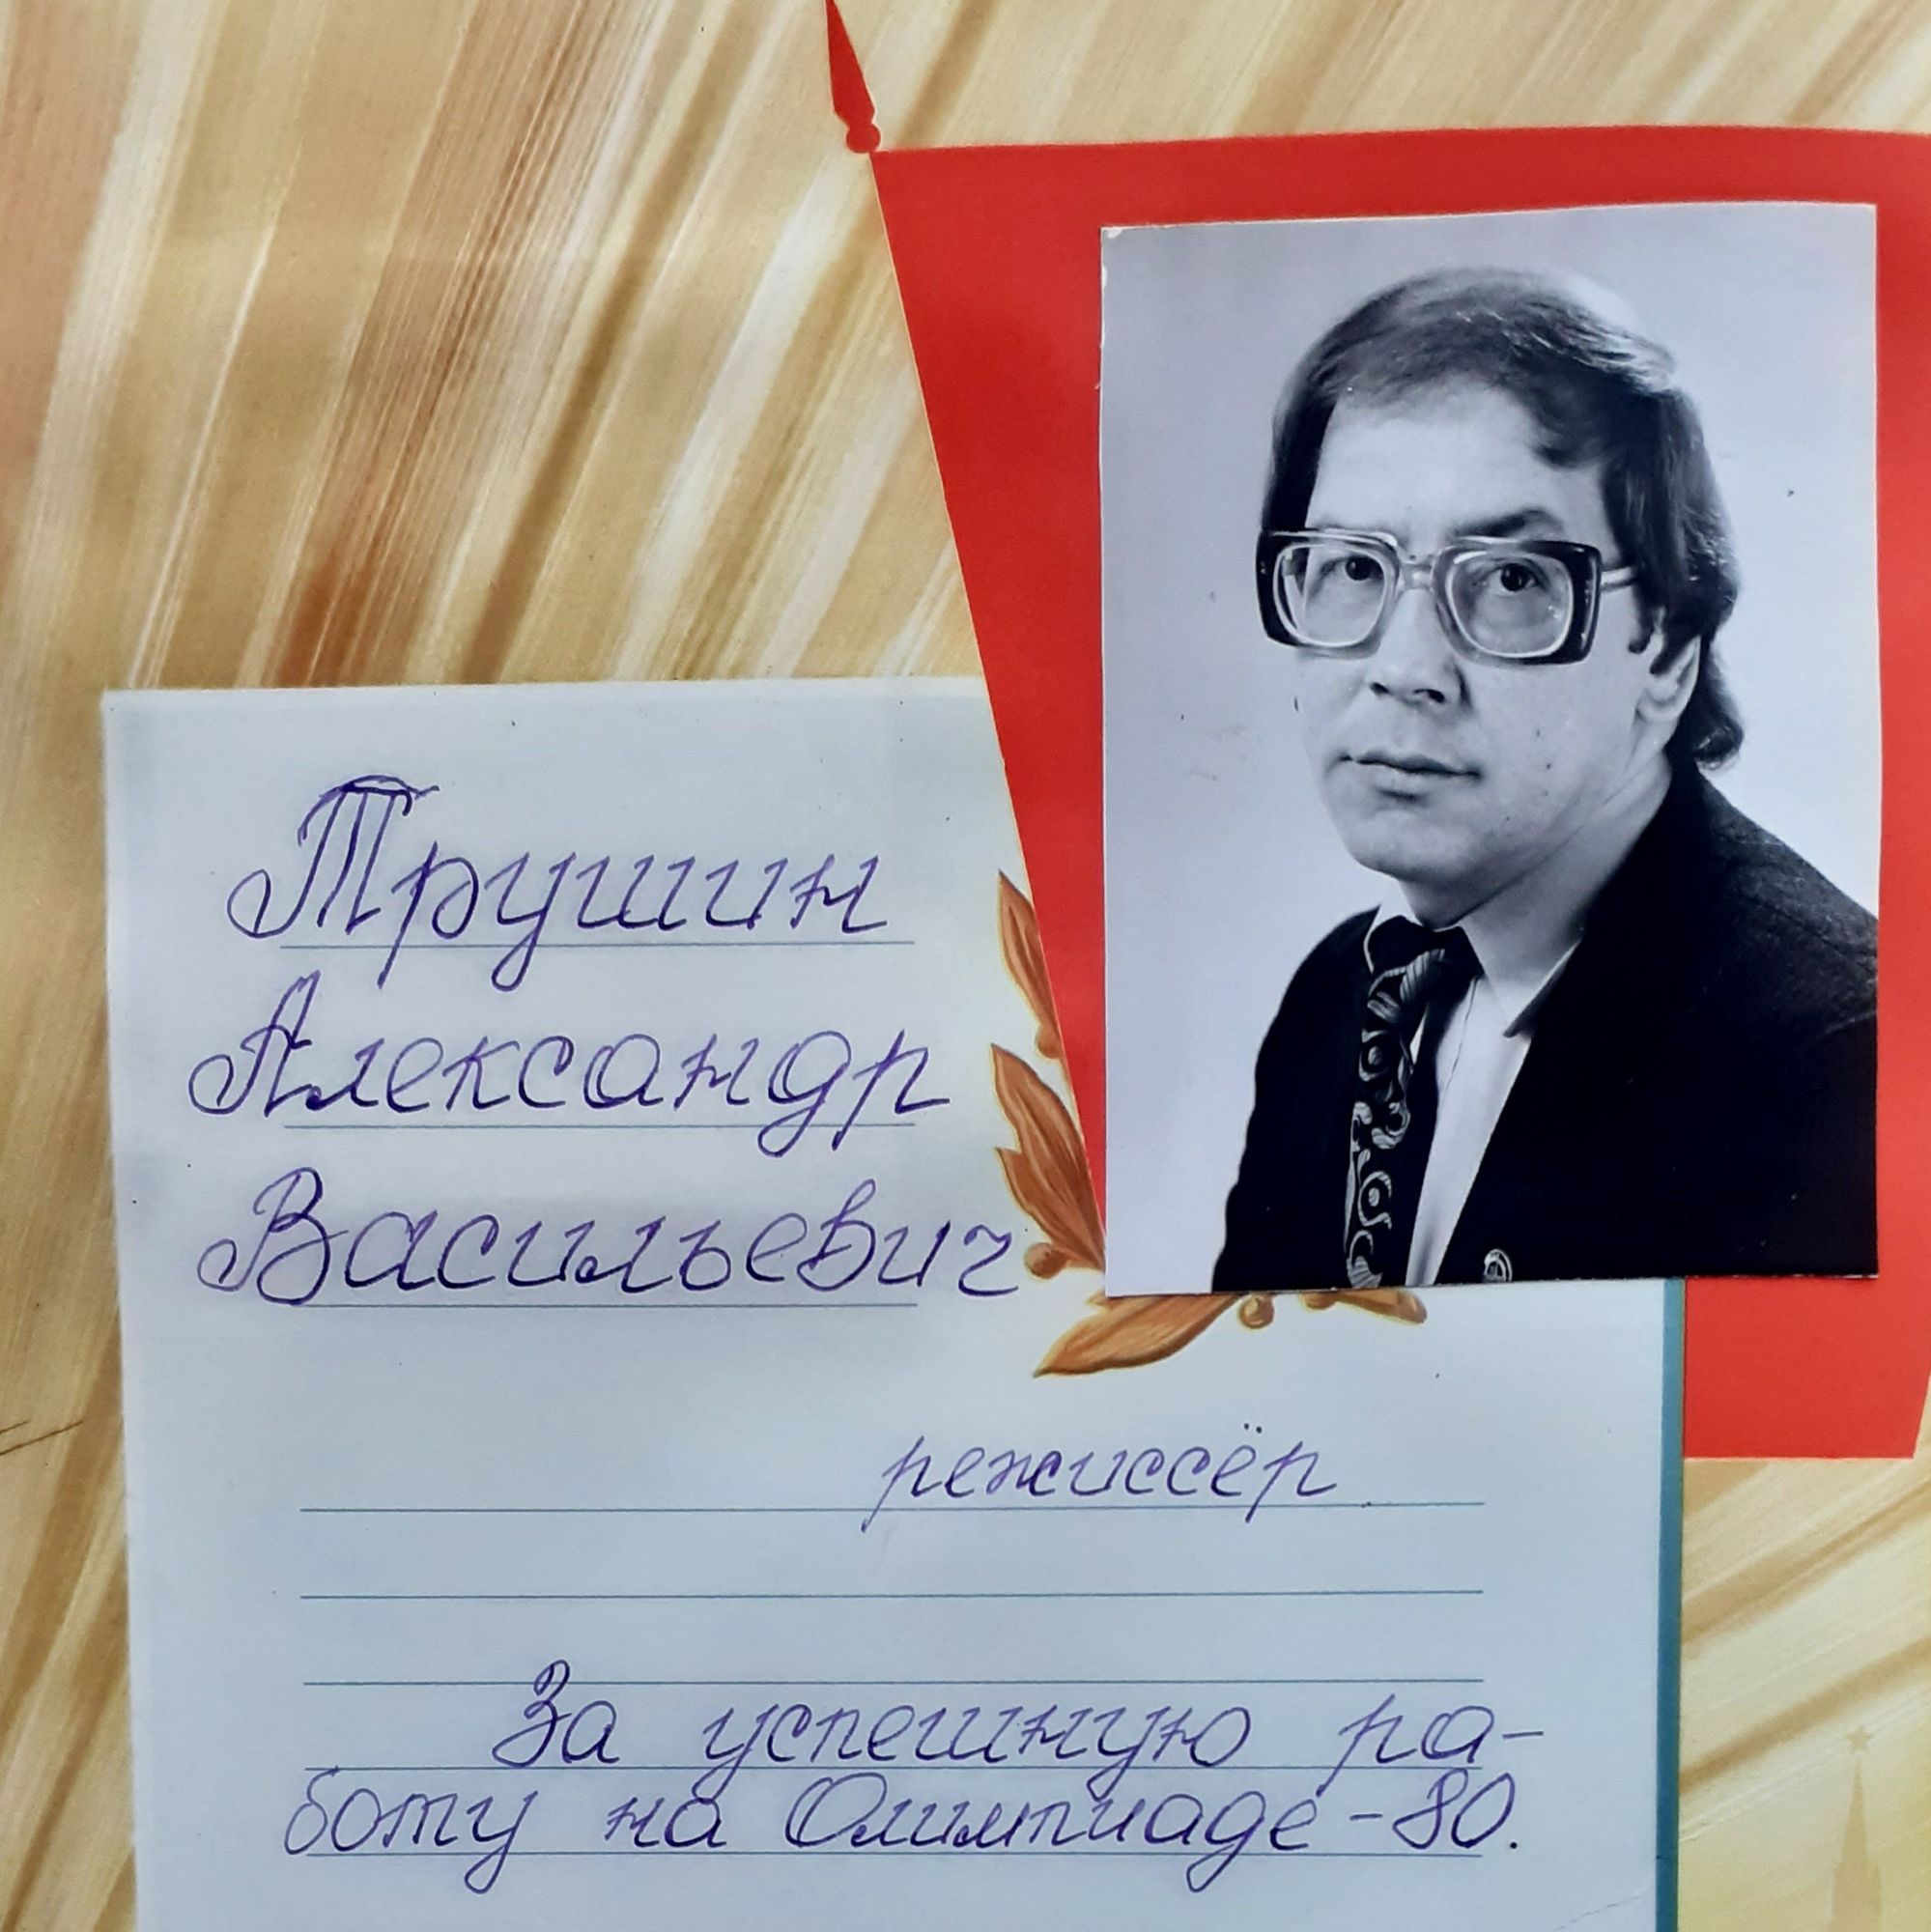 Трушин
Александр
Васильевич
режиссёр
За успешную ра-
боту на Олимпиаде-80.